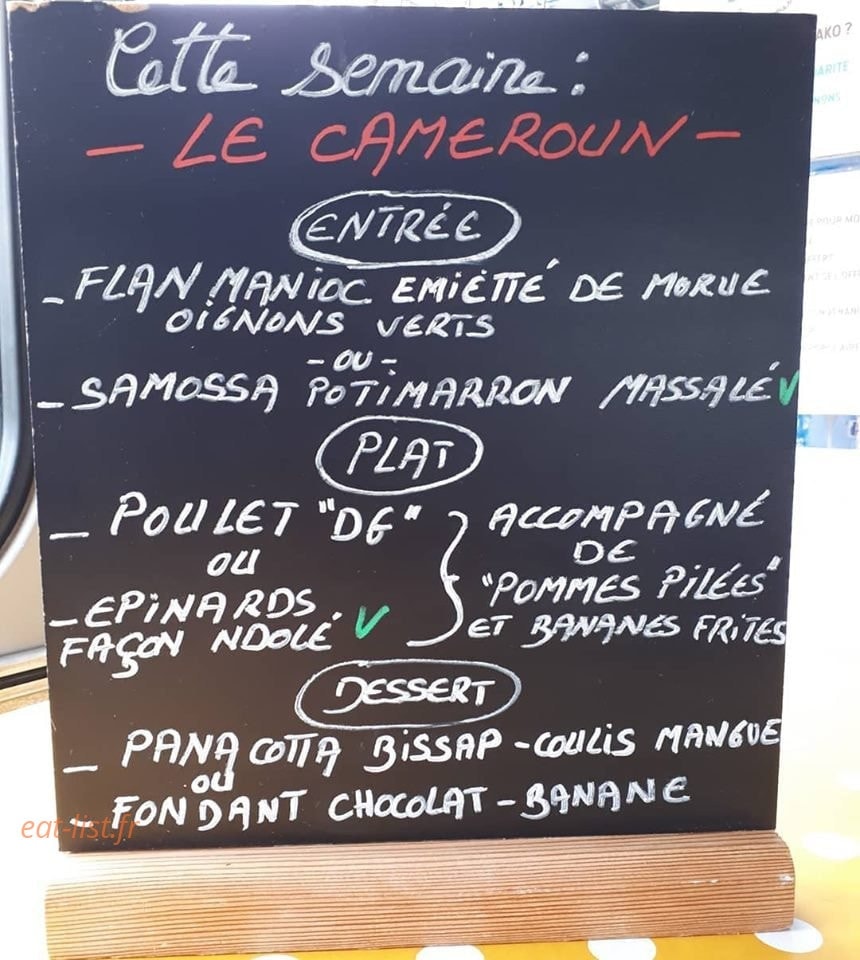 Cette semaine :
- LE CAMEROUN -
ENTRÉE
- FLAN MANIOC EMIÈTTÉ DE MORUE
OIGNONS VERTS
- OU -
- SAMOSSA POTIMARRON MASSALÉ V
PLAT
- POULET "DG"
OU
- EPINARDS
FAÇON NDOLÉ V
ACCOMPAGNÉ
DE
"POMMES PILÉES"
ET BANANES FRITES
DESSERT
- PANA COTTA BISSAP - COULIS MANGUE
OU
- FONDANT CHOCOLAT - BANANE
eat-list.fr
AKO ?
ARITE
NONS
POUR MO